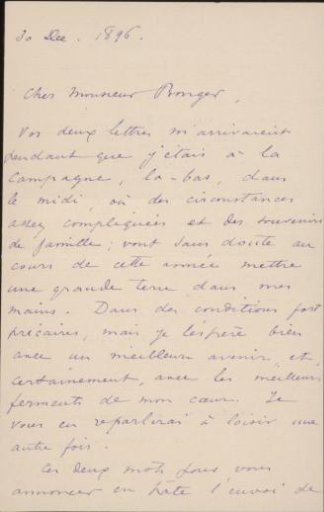 30 Dec. 1896.
Cher Monsieur Bonger,
Vos deux lettres m'arrivaient
pendant que j'étais à la
campagne, là-bas, dans
le midi, où des circonstances
assez compliquées et des souvenirs
de famille, vont sans doute au
cours de cette année mettre
une grande terre dans mes
mains. Dans des conditions fort
précaires, mais je l'espère bien
avec un meilleur avenir, et,
certainement, avec les meilleurs
ferments de mon cœur. Je
vous en reparlerai à loisir une
autre fois.
Ces deux mots pour vous
annoncer en hâte l'envoi de